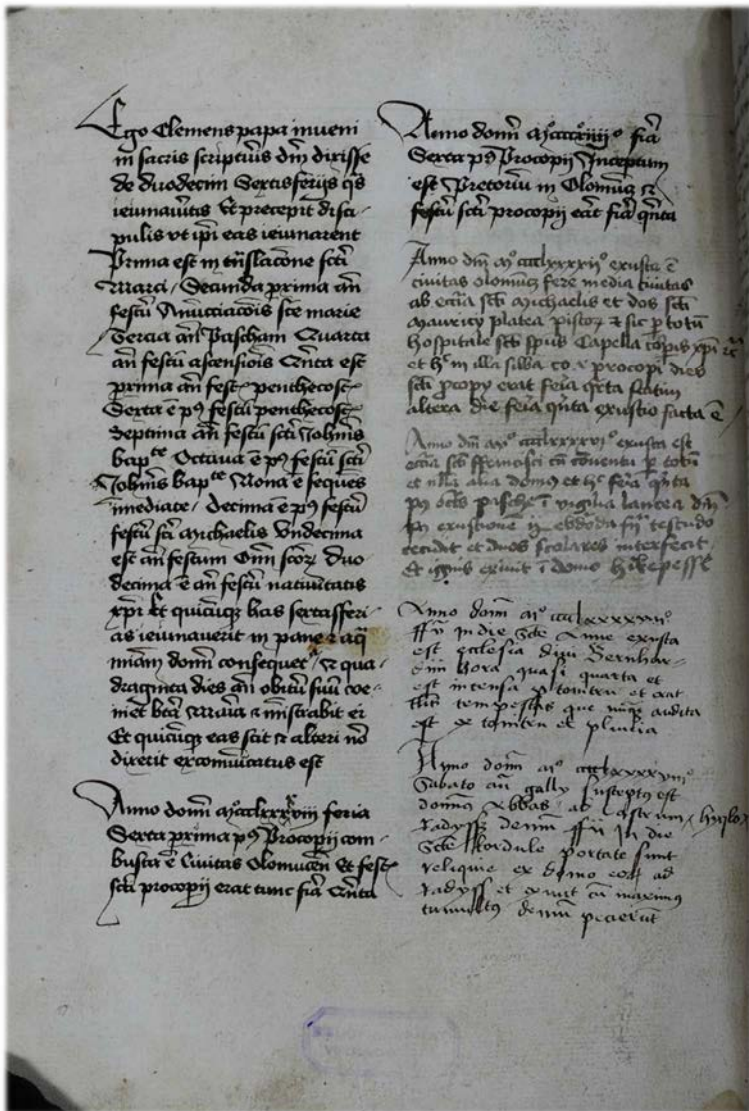 Ego Clemens papa inueni
in sacris scripturis dnm dixisse
de duodecim Sextisferijs qs
ieiunauitis Vt precepit disci
pulis vt ipi eas ieiunarent
Prima est in tnslacone scti
Marci. Secunda prima an
festu Annucciacois sce marie
Tercia an Pascham Quarta
an festu ascensiois Qnta est
prima an fest penthecost
Sexta e p9 festu penthecost
Septima an festu scti Johnis
bapte Octaua e p9 festu scti
Johnis bapte Nona e seques
imediate. Decima e p9 festu
festu scti Michaelis Vndecima
est an festum Omi scoꝝ Duo
decima e an festu natiuitatis
xpi Et quicuqꝫ has sextasferi
as ieiunauerit in pane z aq
miam domi consequet z qua
draginta dies an obitu suu
bta Maria z mistrabit ei
Et quicuqꝫ eas scit z alteri no
dixerit excomuicatus est
Anno domi feria
Sexta prima p9 Procopij com
busta e Ciuitas Olomucen Et fest
scti procopij erat tunc fia Qnta
Anno domi fia
Sexta p9 Procopij Inceptum
est Pretoriu in Olomucz z
festu scti procopij erat fia qnta
Anno dni mo cccclxxxxijo exusta e
ciuitas olomucz fere media ciuitas
ab eccia scti Michaelis et dos scti
Mauricy platea pistoꝝ z sic p totu
hospitale scti spus Capella corpis xpi
et in illa procopi dies
scti pcopy erat feria qrta
altera die feria qnta exustio facta e
Anno dni mo cccclxxxxvjo exusta est
eccia scti ffrancisci cu conuentu p totu
et nlla alia domus et feria qnta
p9 octas pasche i vigilia lancea dni
p9 exustione testudo
cecidit et duos scolares interfecit
Et ignis exiuit i domo
Anno domi mo cccclxxxxvijo
in die Scte Anne exusta
est ecclesia diui Bernhar
dini hora quasi quarta et
est intensa p tonitru et erat
tempestas que nuqꝫ audita
est ex tonitru et pluuia
Anno domi mo cccclxxxxviijo
Sabato an gally susceptus est
domnus Abbas ad castrum
Radyssz demu in die
Scte Kordule portate sunt
reliquie ex domo ad
Radyss et exiuit cu maximo
tumultu demu